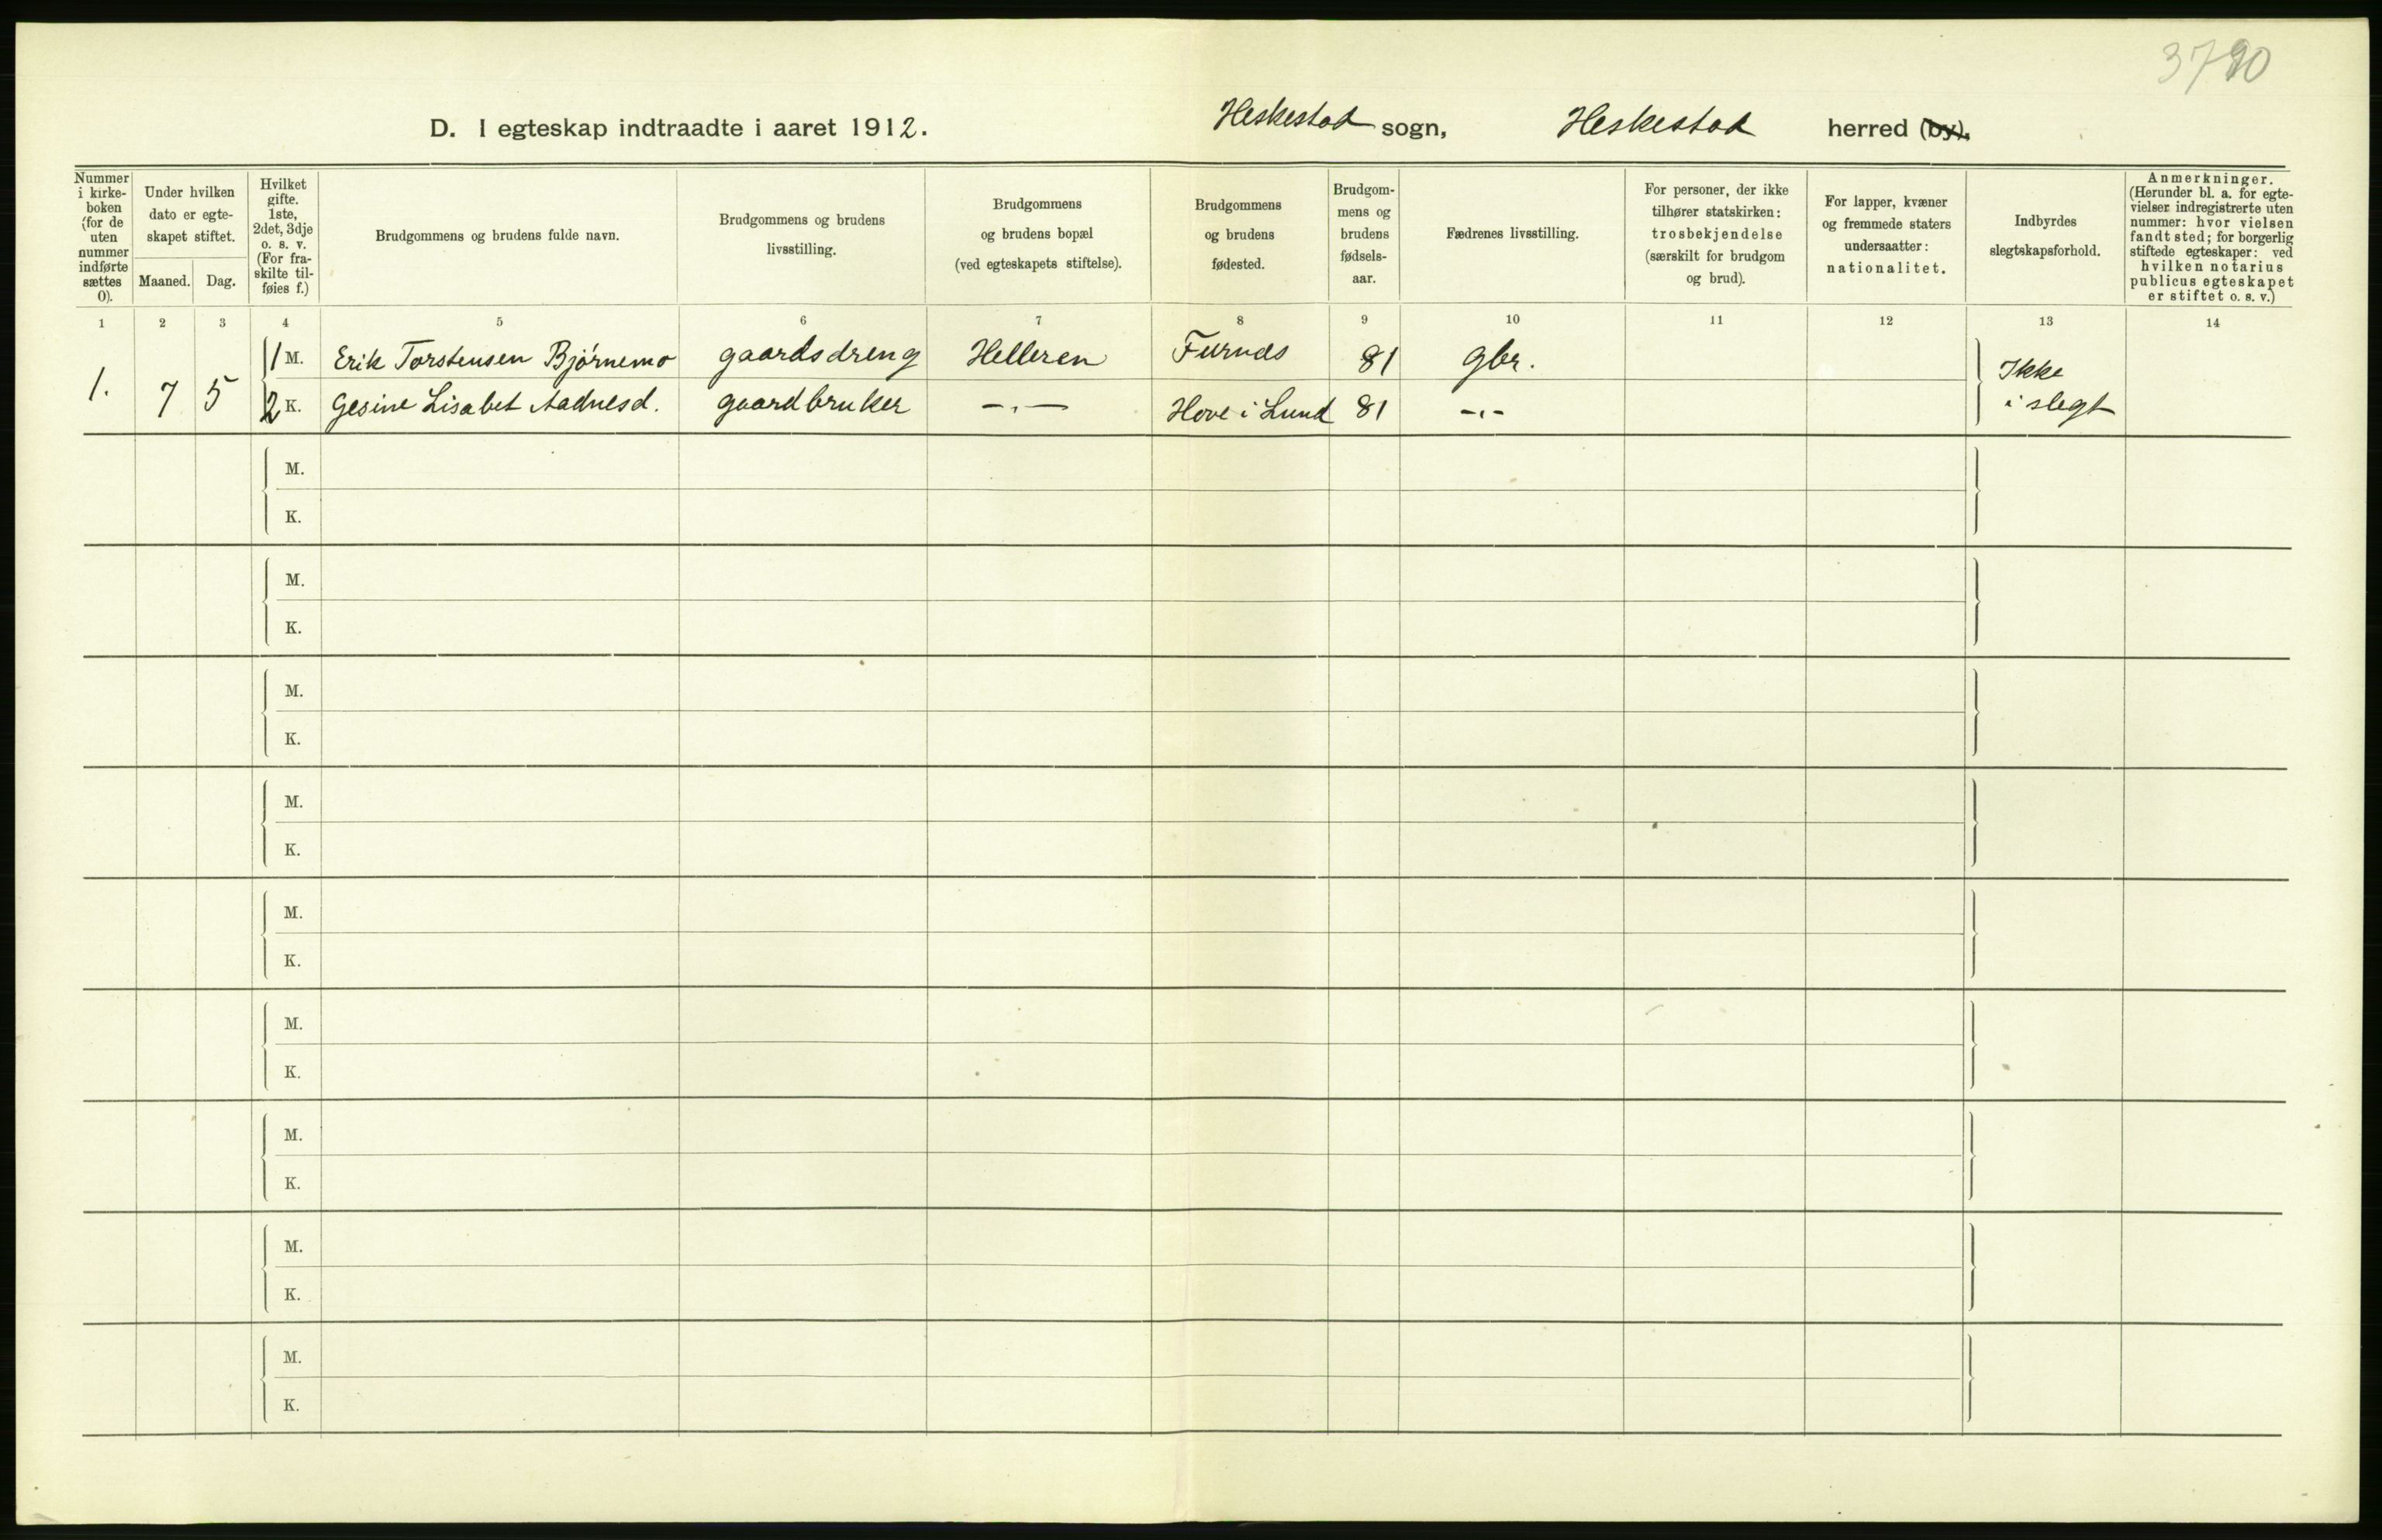 3790
D. I egteskap indtraadte i aaret 1912. Heskestad sogn, Heskestad herred (by).
Nummer i kirkeboken (for de uten nummer indførte sættes 0).
Under hvilken dato er egteskapet stiftet.
Maaned. Dag.
Hvilket gifte. 1ste, 2det, 3dje o. s. v. (For fraskilte tilføies f.)
Brudgommens og brudens fulde navn.
Brudgommens og brudens livsstilling.
Brudgommens og brudens bopæl (ved egteskapets stiftelse).
Brudgommens og brudens fødested.
Brudgommens og brudens fødselsaar.
Fædrenes livsstilling.
For personer, der ikke tilhører statskirken: trosbekjendelse (særskilt for brudgom og brud).
For lapper, kvæner og fremmede staters undersaatter: nationalitet.
Indbyrdes slegtskapsforhold.
Anmerkninger. (Herunder bl. a. for egtevielser indregistrerte uten nummer: hvor vielsen fandt sted; for borgerlig stiftede egteskaper: ved hvilken notarius publicus egteskapet er stiftet o. s. v.)
1 2 3 4 5 6 7 8 9 10 11 12 13 14
1. 7 5
1 M. Erik Torstensen Bjørnemo gaardsdreng Helleren 81 gbr.
2 K. Gesine Lisabet Aadnesd. gaardbruker -„- Hove i Lund 81 -„-
Ikke
i slegt
M.
K.
M.
K.
M.
K.
M.
K.
M.
K.
M.
K.
M.
K.
M.
K.
M.
K.